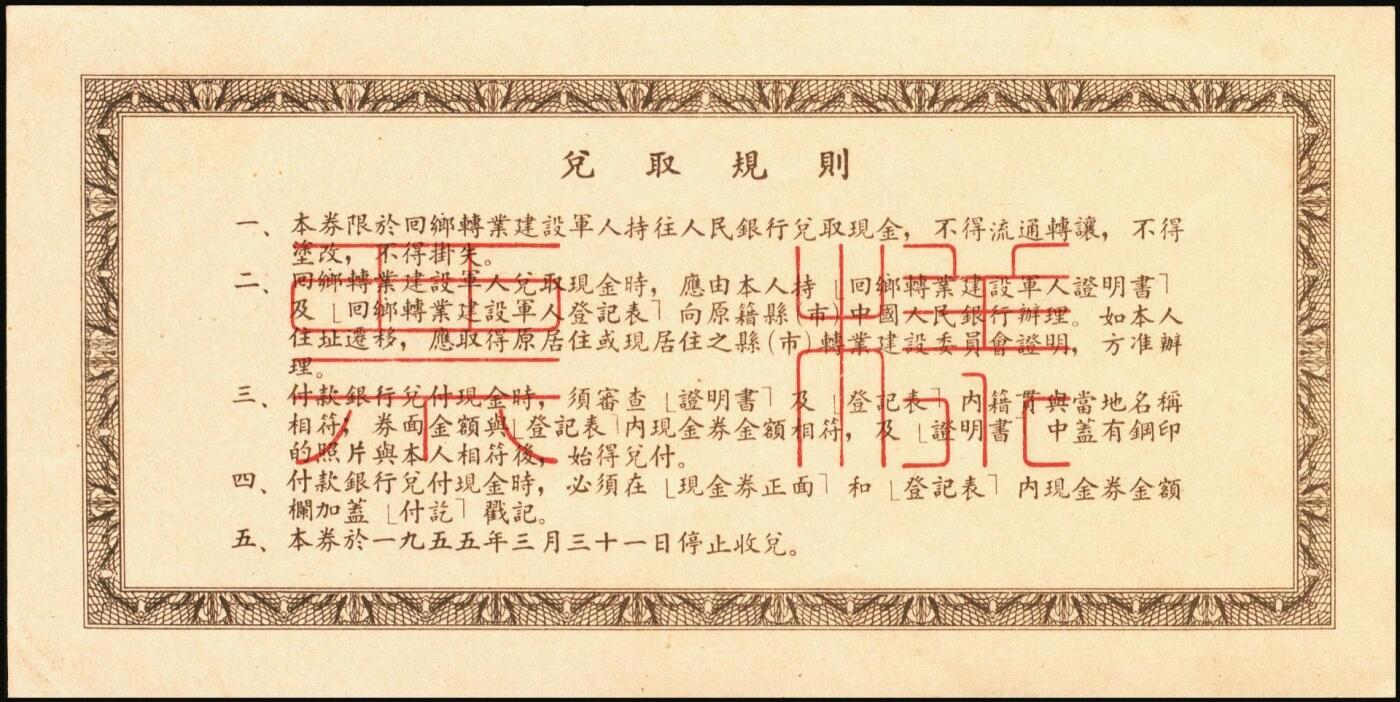 兌取規則
一、本券限於回鄉轉業建設軍人持往人民銀行兌取現金，不得流通轉讓，不得
塗改，不得掛失。
二、回鄉轉業建設軍人兌取現金時，應由本人持⌊回鄉轉業建設軍人證明書⌉
及⌊回鄉轉業建設軍人登記表⌉向原籍縣(市)中國人民銀行辦理。如本人
住址遷移，應取得原居住或現居住之縣(市)轉業建設委員會證明，方准辦
理。
三、付款銀行兌付現金時，須審查⌊證明書⌉及⌊登記表⌉內籍貫與當地名稱
相符；券面金額與⌊登記表⌉內現金券金額相符，及⌊證明書⌉中蓋有鋼印
的照片與本人相符後，始得兌付。
四、付款銀行兌付現金時，必須在⌊現金券正面⌉和⌊登記表⌉內現金券金額
欄加蓋⌊付訖⌉戳記。
五、本券於一九五五年三月三十一日停止收兌。
票樣